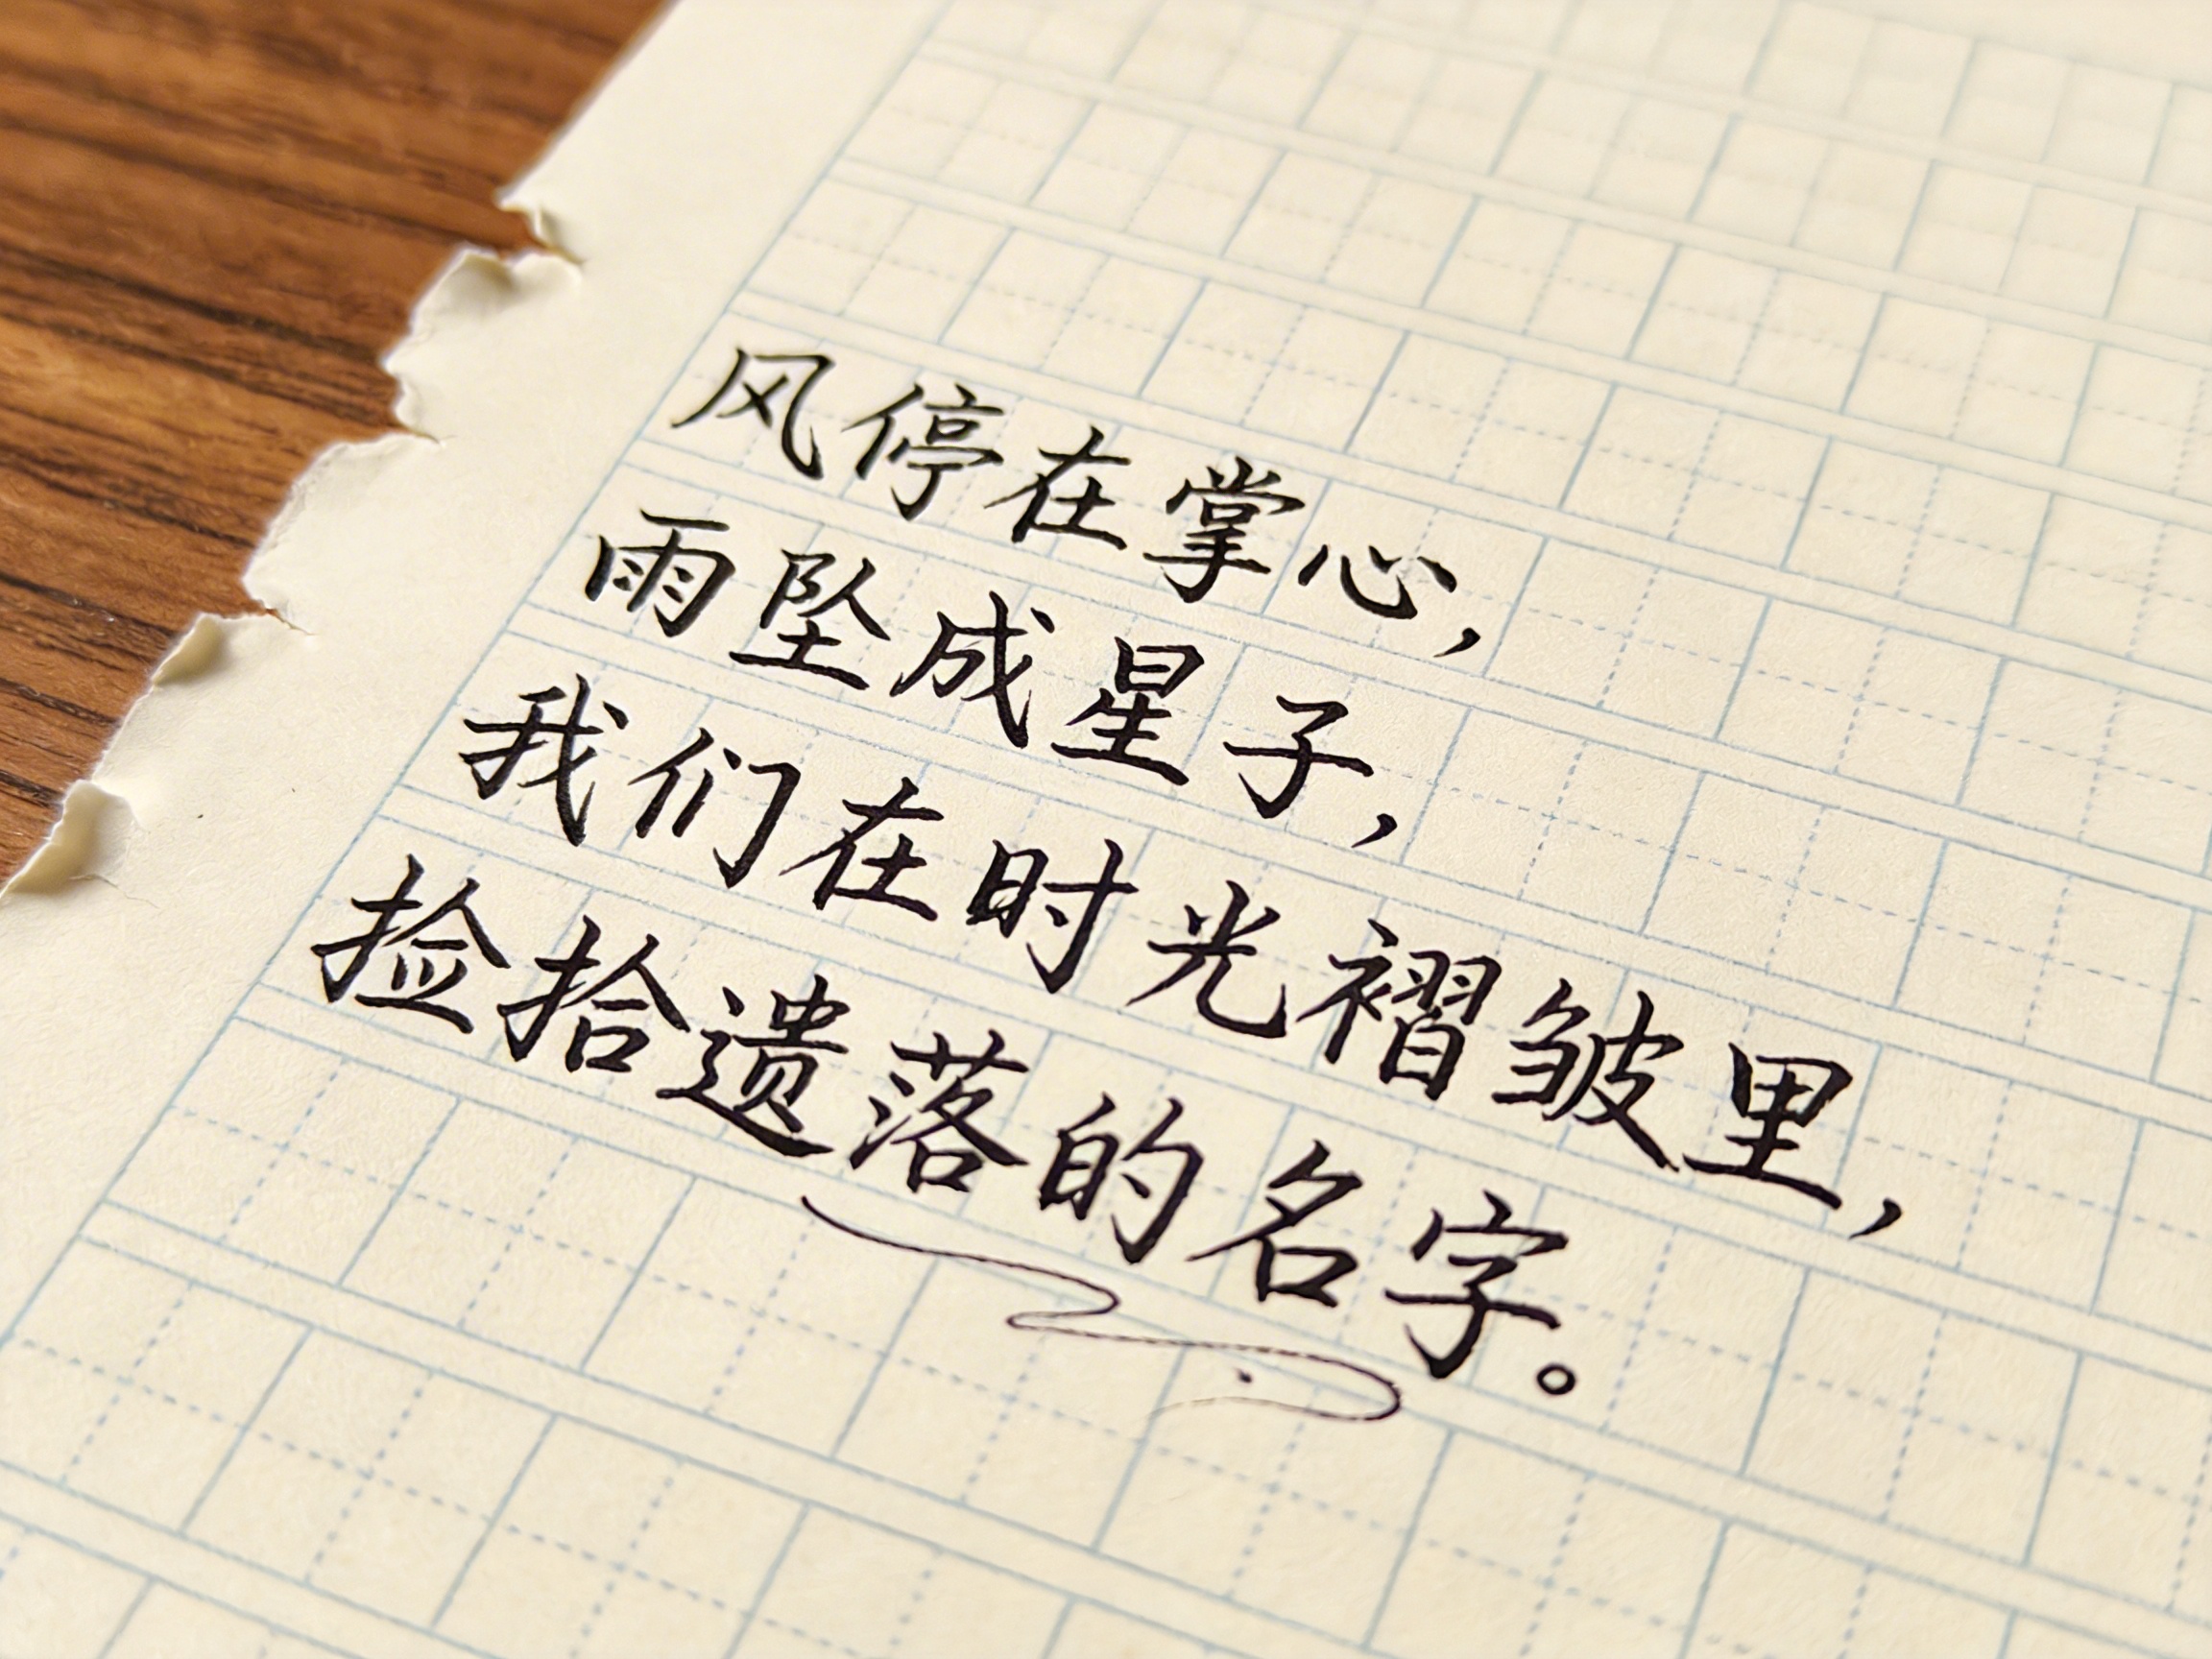 风停在掌心，
雨坠成星子，
我们在时光褶皱里，
捡拾遗落的名字。